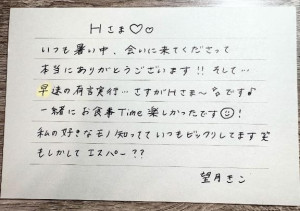 Hさま♡♡
いつも暑い中、会いに来てくださって
本当にありがとうございます!! そして…
早速の有言実行… さすがHさま〜°。です♪
一緒にお食事Time楽しかったです☺!
私の好きなモノ知ってていつもビックリしてます
もしかしてエスパー??
望月きこ